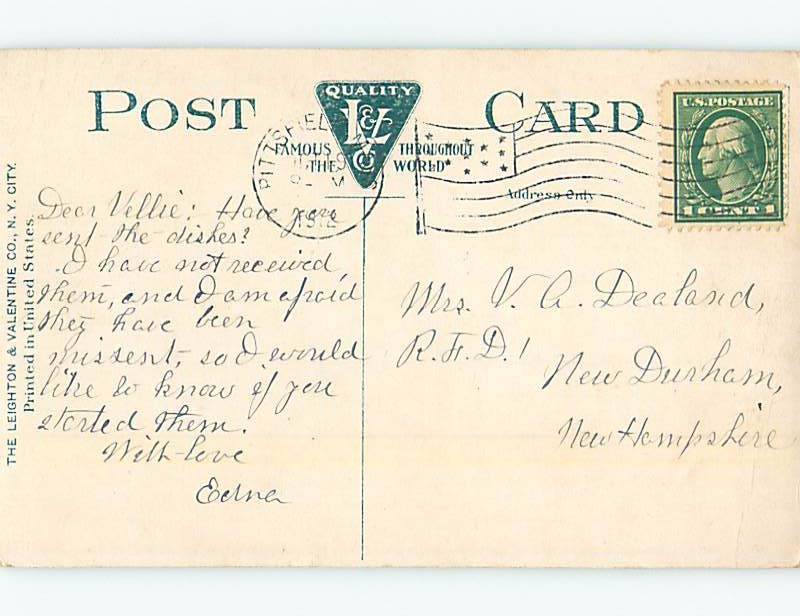 POST CARD
QUALITY
L&V
Co
FAMOUS THROUGHOUT
THE WORLD
PITTSFIEL
1912
Address Only
U.S. POSTAGE
1 CENT 1
THE LEIGHTON & VALENTINE CO., N.Y. CITY.
Printed in United States.
Dear Vellie: Have you
sent the dishes?
I have not received
them, and I am afraid
they have been
missent, so I would
like to know if you
started them.
With love
Edna
Mrs. V. A. Dealand,
R.F.D.1
New Durham,
New Hampshire